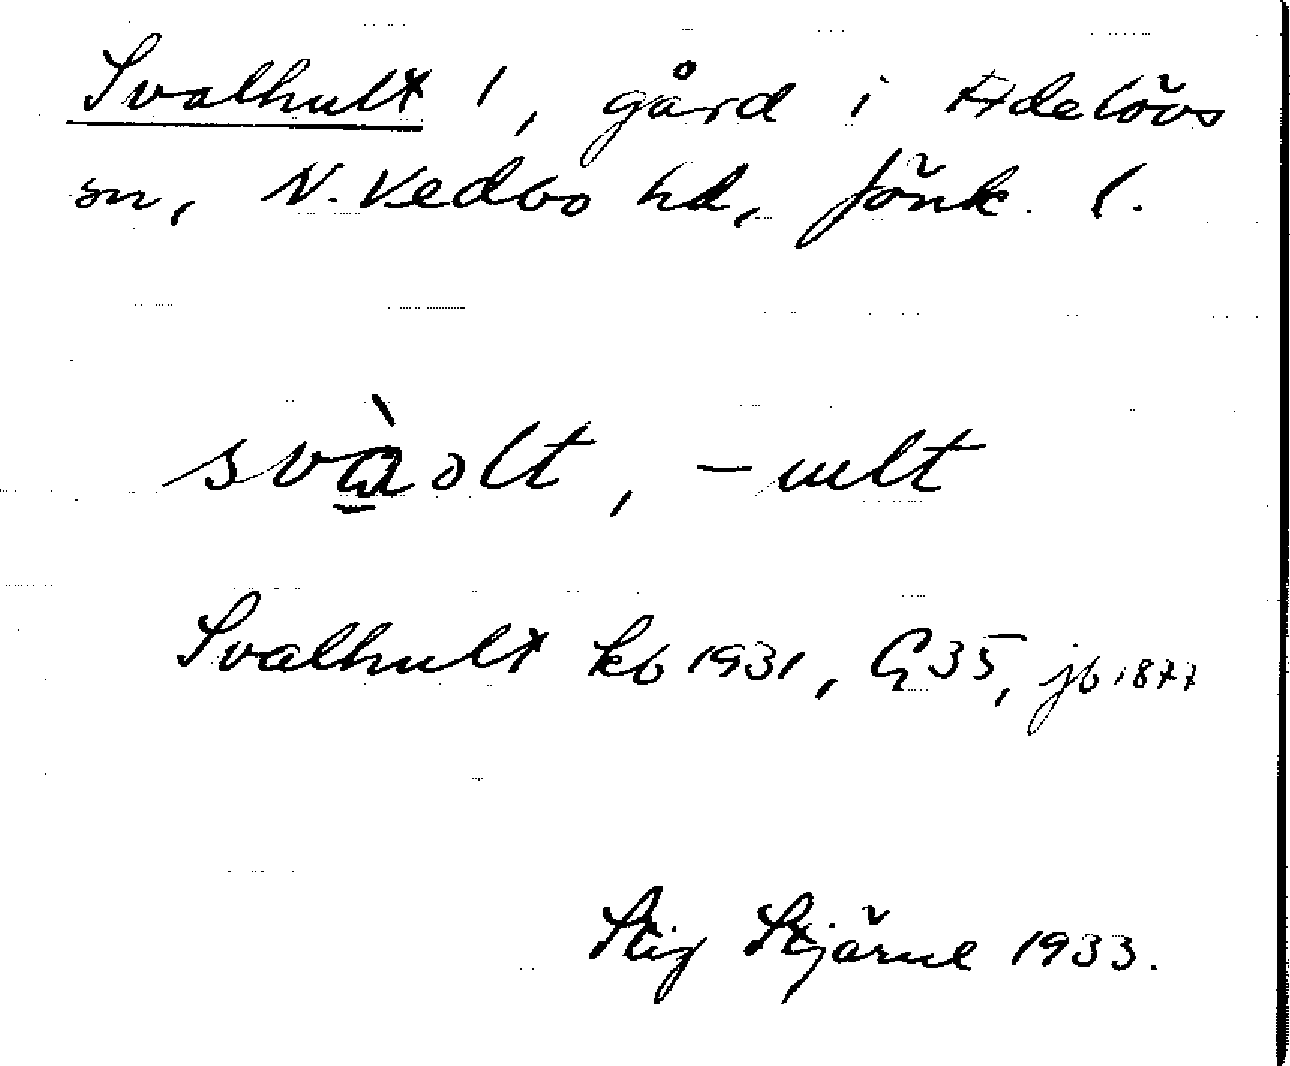 Svalhult /, gård i Adelövs
sn, N. Vedbo hd, Jönk. l.
svàolt, -ult
Svalhult kb 1931, G 35, jb 1877
Stig Stjärne 1933.